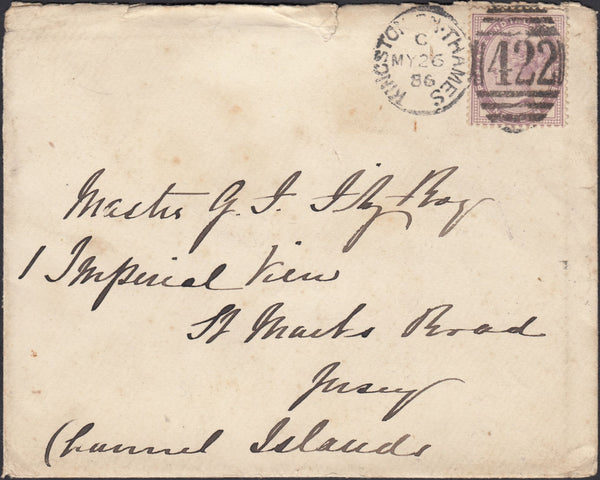 KINGSTON-ON-THAMES
C
MY 26
86
422
Master G. F.
1 Imperial View
St Marks Road
Jersey
Channel Islands